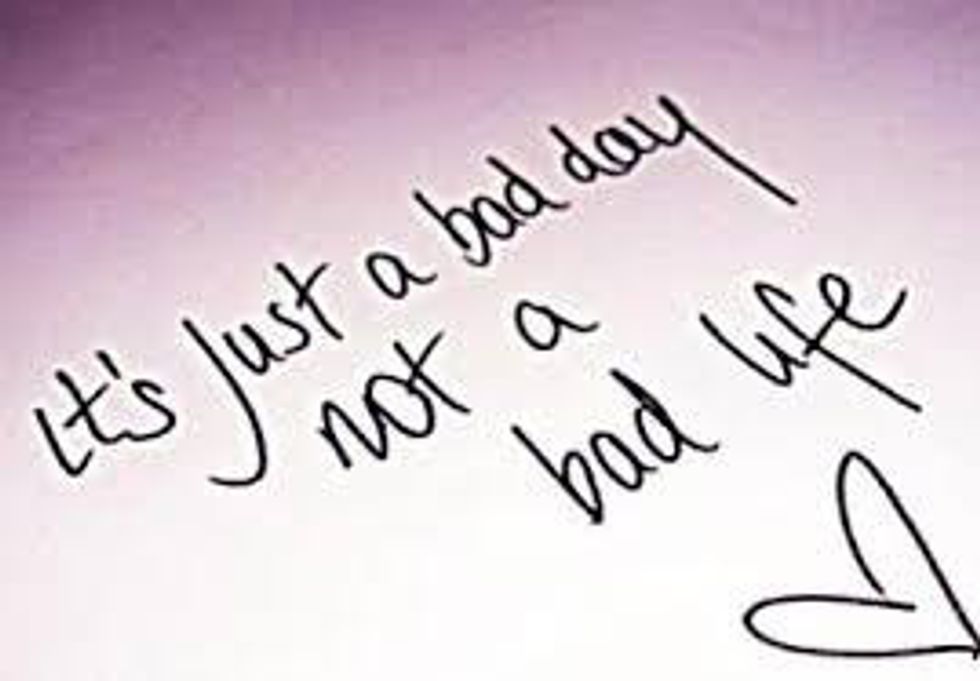 It's Just a bad day
not a
bad life